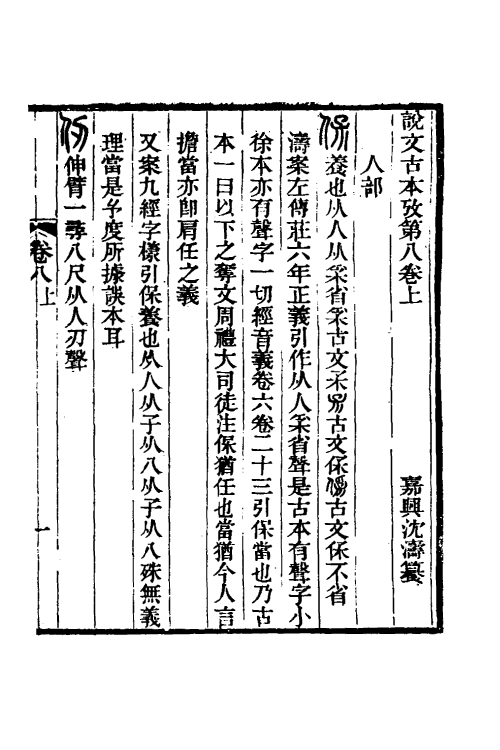 說文古本攷第八卷上
嘉興沈濤纂
人部
保 養也从人从𤓽省𤓽古文孚𤓽古文保𠍙古文保不省
濤案左傳莊六年正義引作从人𤓽省聲是古本有聲字小
徐本亦有聲字一切經音義卷六卷二十三引保當也乃古
本一曰以下之奪文周禮大司徒注保猶任也當猶今人言
擔當亦卽肩任之義
又案九經字樣引保養也从人从子从八从子从八殊無義
理當是予度所據誤本耳
仞 伸臂一尋八尺从人刃聲
卷八上
一